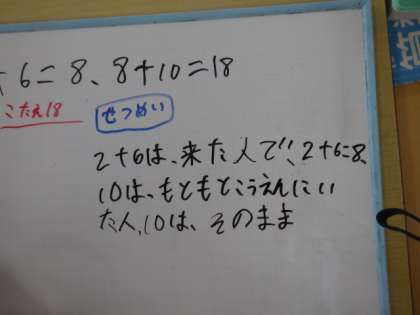 +6=8、8+10=18
こたえ18
せつめい
2+6は、来た人で、2+6=8、
10は、もともとこうえんにい
た人、10は、そのまま